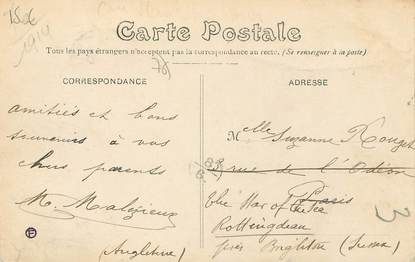 1914
Carte Postale
Tous les pays étrangers n'acceptent pas la correspondance au recto. (Se renseigner à la poste)
78
CORRESPONDANCE
amitiés et bons
souvenirs à vos
chers parents
M. Malézieux
ADRESSE
Melle Suzanne Rouget
rue de l'Odéon
Paris
the Star of the Sea
Rottingdean
près Brighton (Sussex)
(Angleterre)
3